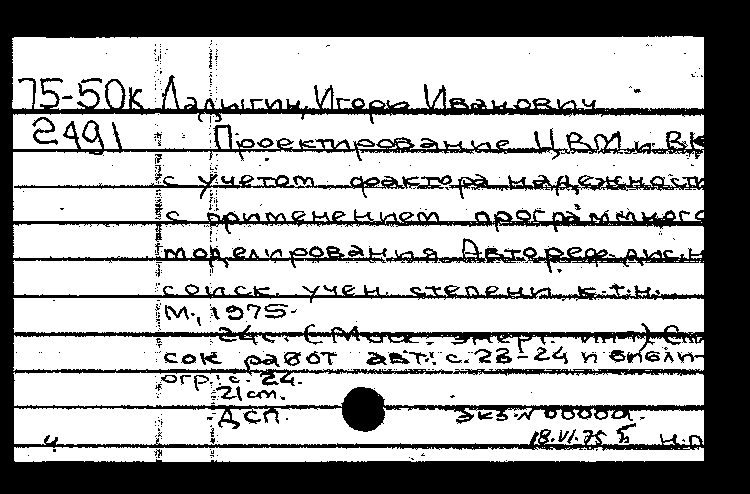 75-50к Ладыгин, Игорь Иванович
2491 Проектирование ЦВМ и ВК
с учетом фактора надежности
с применением программного
моделирования. Автореф. дис. н
соиск. учен. степени к.т.н.
М., 1975.
24с. (Моск. энерг. ин-т). Спи
сок работ авт.: с. 23-24 и библи-
огр.: с. 24.
21 см.
ДСП. Экз. N 00000
4 18.VI.75 Н.П